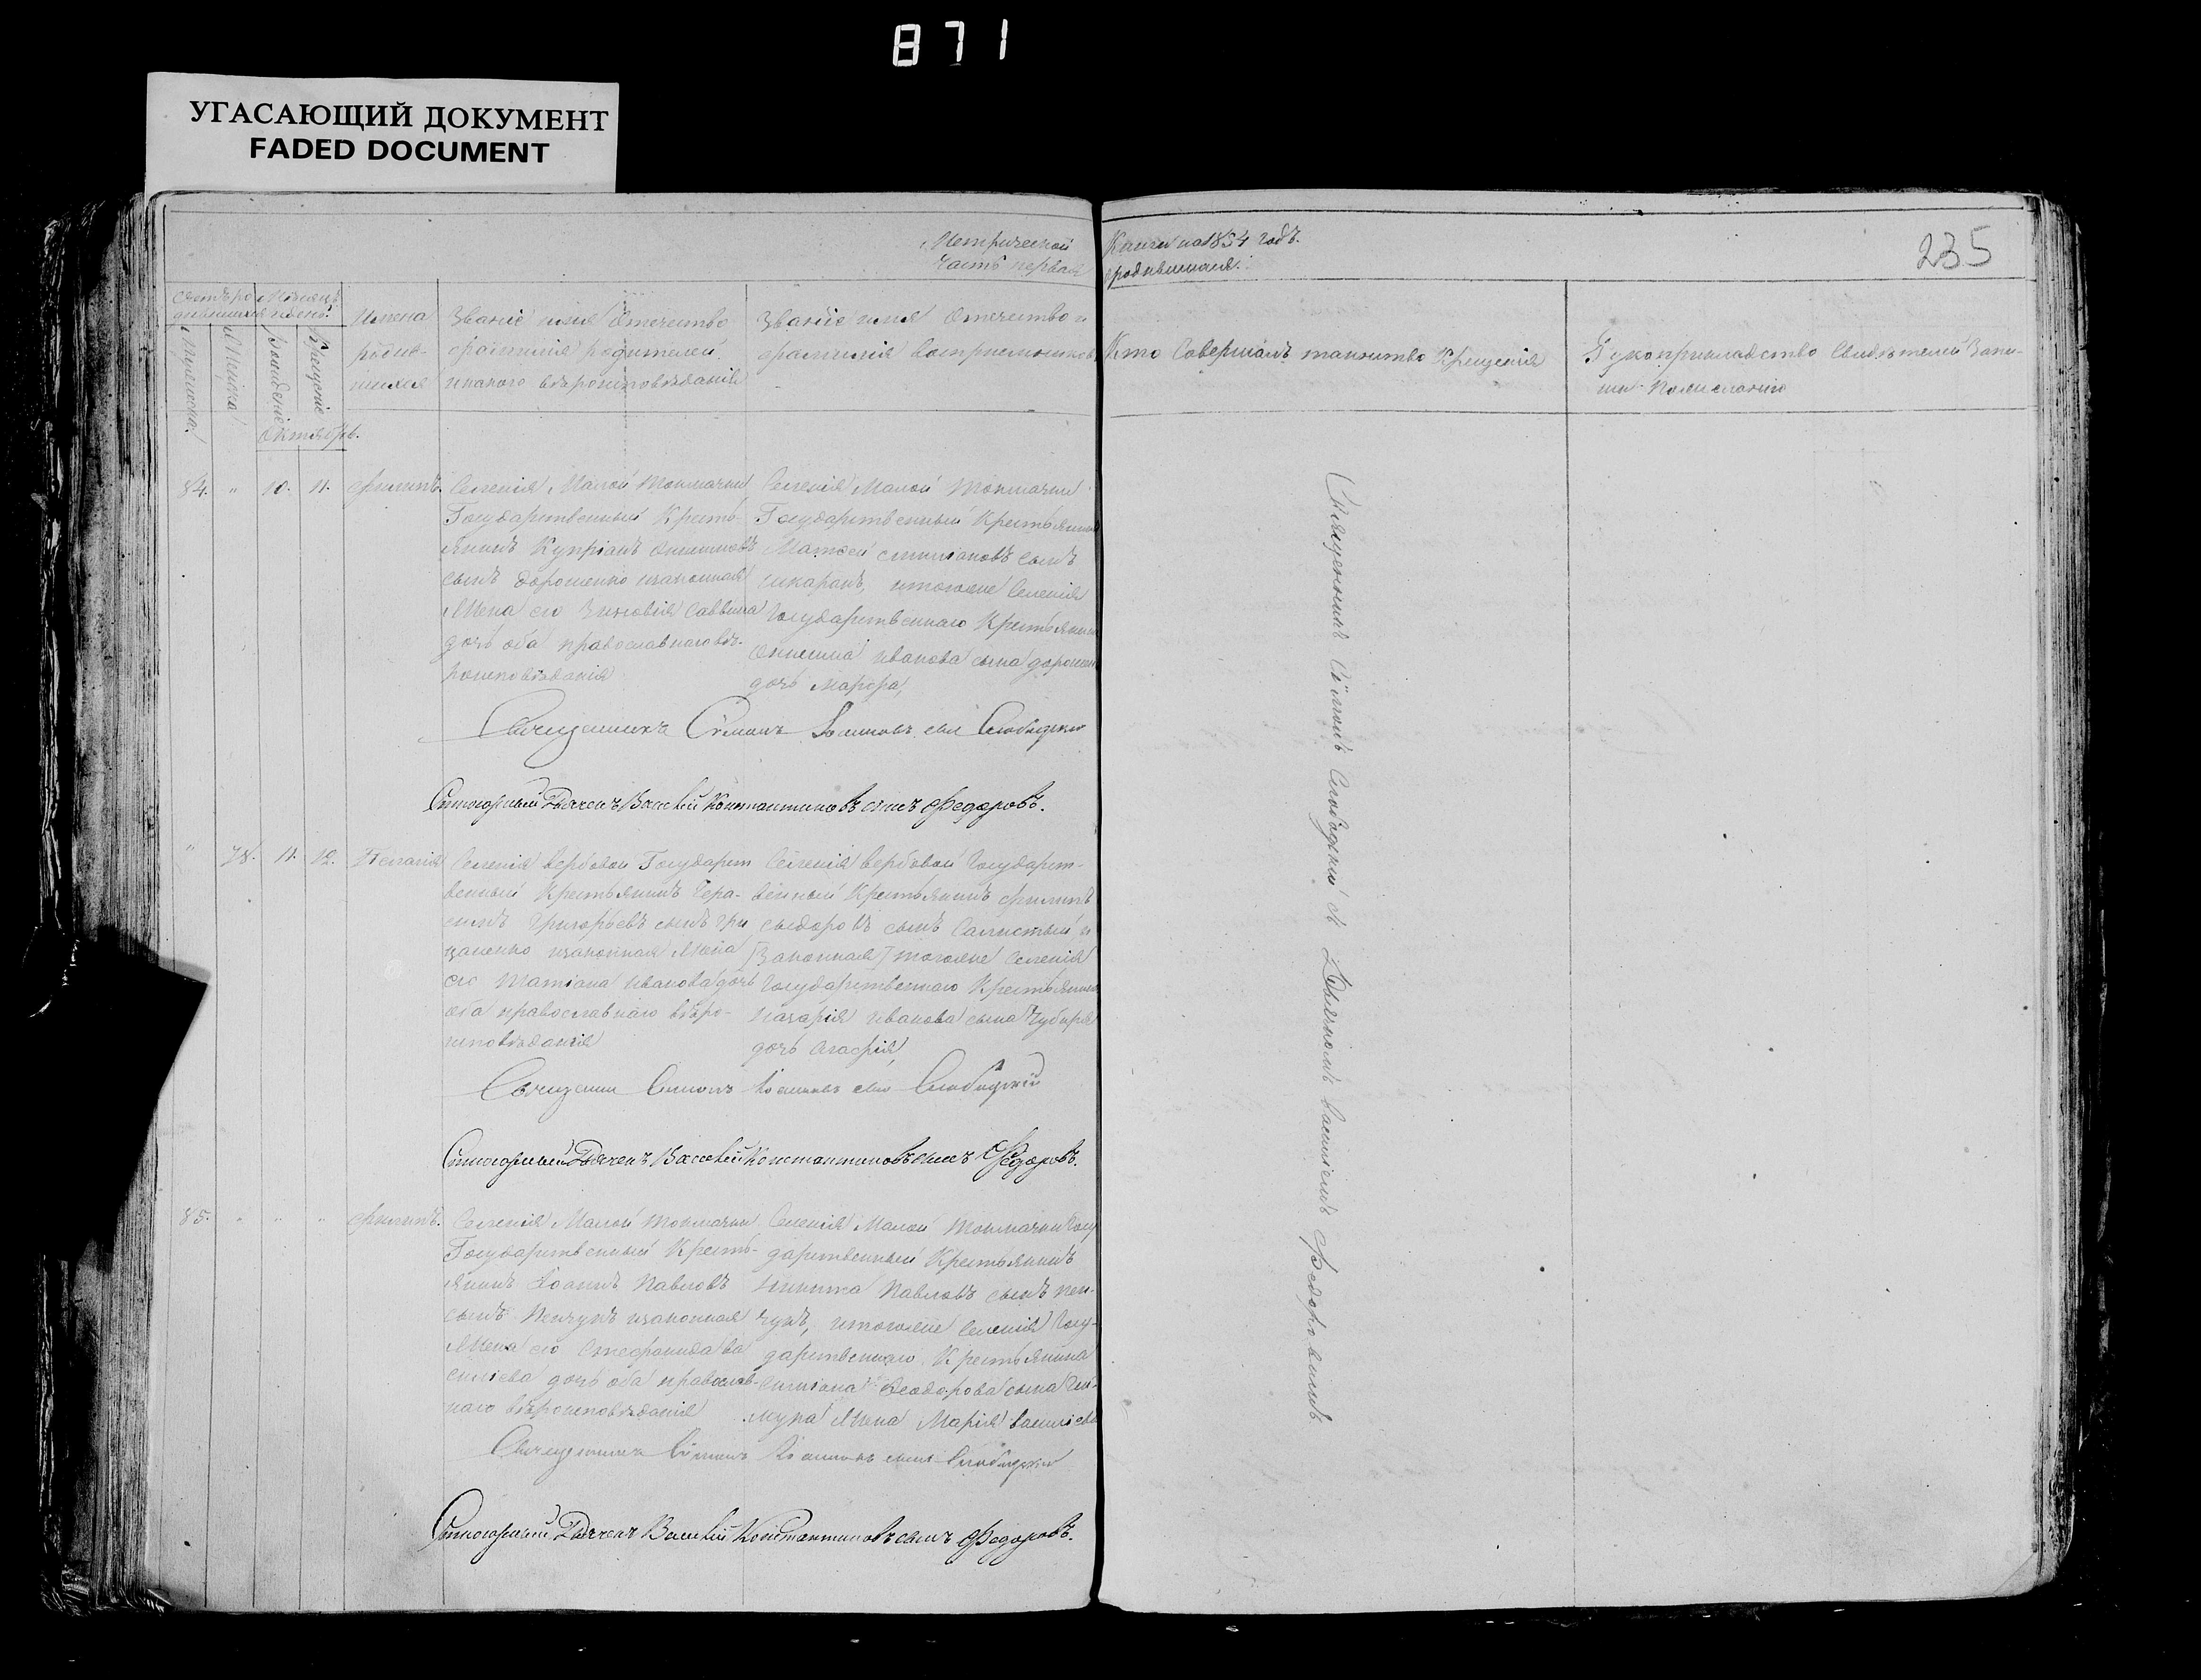 871
УГАСАЮЩИЙ ДОКУМЕНТ
FADED DOCUMENT
235
Метрической Книги на 1854 годъ.
Часть первая о родившихся.
Счетъ ро- Мѣсяцъ
дившихся и день.
Мужеска.
Женска
Рожденіе
Крещеніе
Имена
родив-
шихся
Званіе имя Отечество
фамилія родителей.
и какого вѣроисповѣданія
Званіе имя Отечество и
фамилія воспріемниковъ
Кто Совершалъ таинство Крещенія
Рукоприкладство Свидѣтелей Запи-
си По желанію
Октябрь.
84. " 10. 11. Филипъ.
Селенія Малой Токмачки
Государственный Кресть-
янинъ Купріанъ Онисимовъ
сынъ Дорошенко и законная
Жена его Зиновія Саввина
дочь оба православнаго вѣ-
роисповѣданія
Селенія Малой Токмачки
Государственный Крестьянинъ
Матѳей Емиліановъ сынъ
Шкарапъ, и тогоже Селенія
Государственнаго Крестьянина
Онисима Иванова сына Дорошен
дочь Марфа,
Священникъ Симонъ Іоанновъ сынъ Слободскій
Стихарный Дьячекъ Василій Константиновъ сынъ Федоровъ.
" 78. 11. 12. Пелагія
Селенія Вербовой Государст
венный Крестьянинъ Гера-
симъ Григорьевъ сынъ Гри
цаенко и законная Жена
его Татіана Иванова дочь
оба православнаго вѣро-
исповѣданія
Селенія Вербовой Государст-
венный Крестьянинъ Филипъ
Сыдоровъ сынъ Салистый и
[Законная] тогоже Селенія
Государственнаго Крестьянина
Назарія Иванова сына Чубаря
дочь Агафія,
Священни Симонъ Іоанновъ сынъ Слободскій
Стихарный Дьячекъ Василій Константиновъ сынъ Федоровъ.
85. " " " Филипъ.
Селенія Малой Токмачки
Государственный Кресть-
янинъ Іоаннъ Павловъ
сынъ Пенчукъ и законная
Жена его Стефанида Ва
силіева дочь оба православ-
наго вѣроисповѣданія
Селенія Малой Токмачки Госу
дарственный Крестьянинъ
Никита Павловъ сынъ Пен-
чукъ, и тогоже Селенія Госу-
дарственнаго Крестьянина
Емиліана Ѳеодорова сына
Жена Марія Василіева
Священникъ Симонъ Іоанновъ сынъ Слободскій
Стихарный Дьячекъ Василій Константиновъ сынъ Федоровъ.
Священникъ Симонъ Слободскій съ Дьячкомъ Василіемъ Федоровимъ